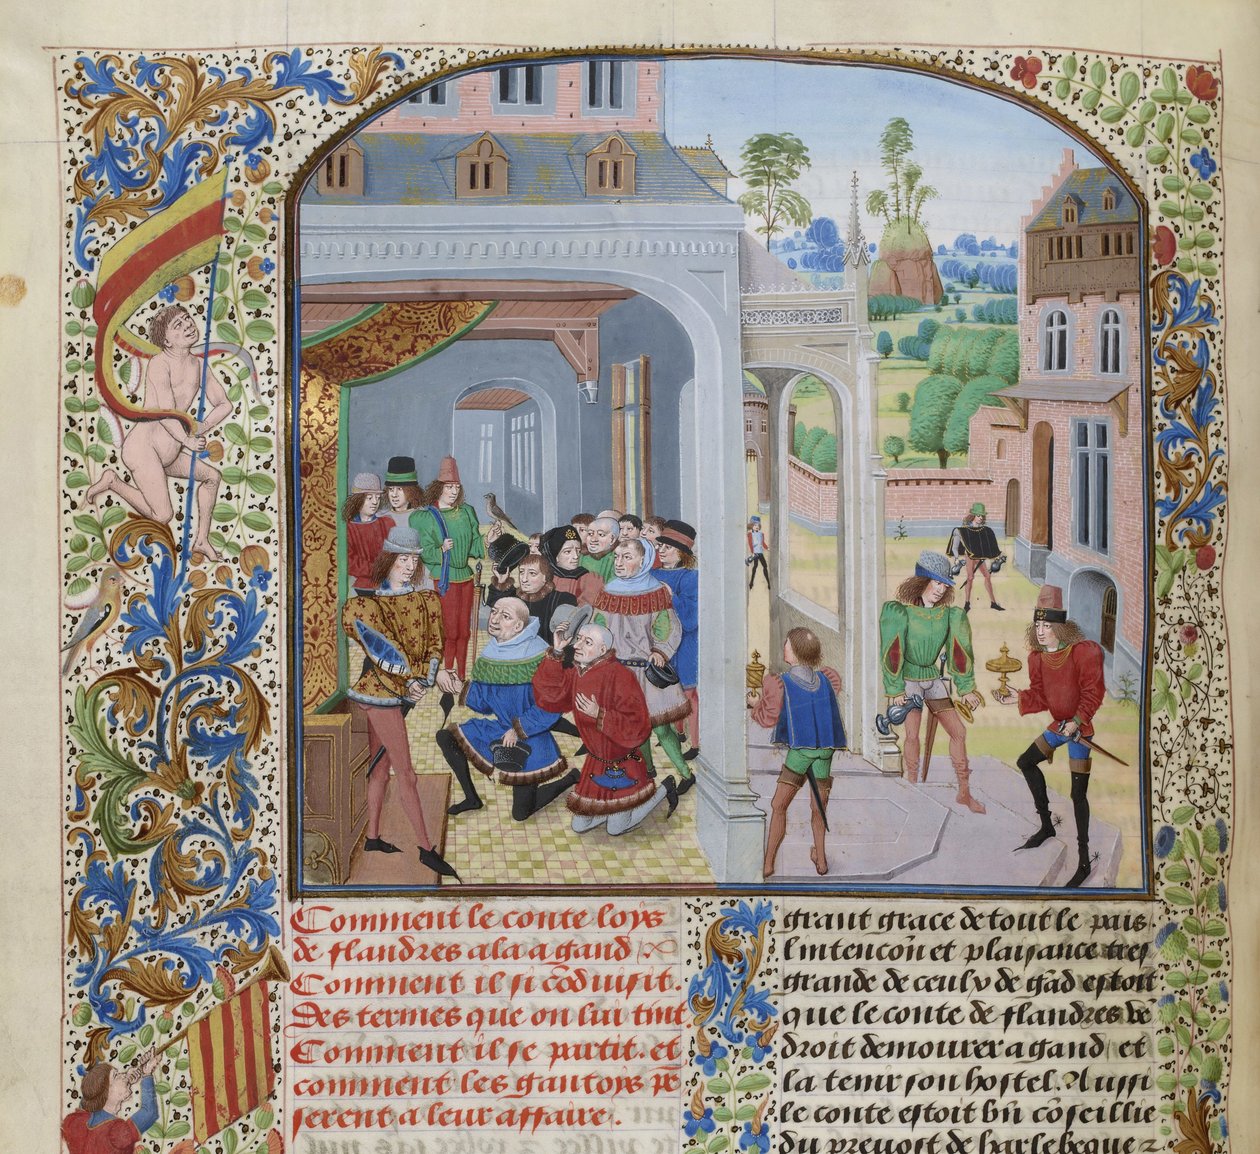 Comment le conte loys
de flandres ala a gand
Comment il si cõduisit.
Des termes que on lui tint
Comment il se partit. et
comment les gantoys põ
serent a leur affaire.
grant grace de tout le pais.
lintencõn et plaisance tres
grande de ceulx de gãd estoit
que le conte de flandres de
droit demourer a gand et
la tenir son hostel. Aussi
le conte estoit bñ cõseillie
du prevost de harlebeque z